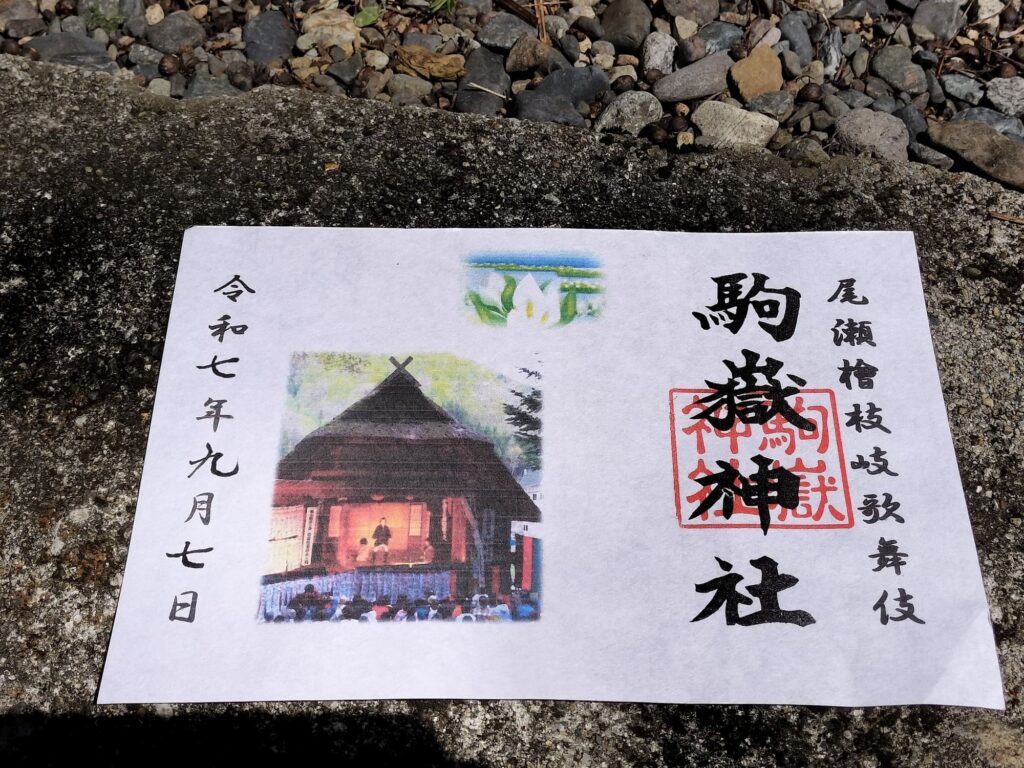 尾瀬檜枝岐歌舞伎
駒嶽神社
駒嶽
神社
令和七年九月七日